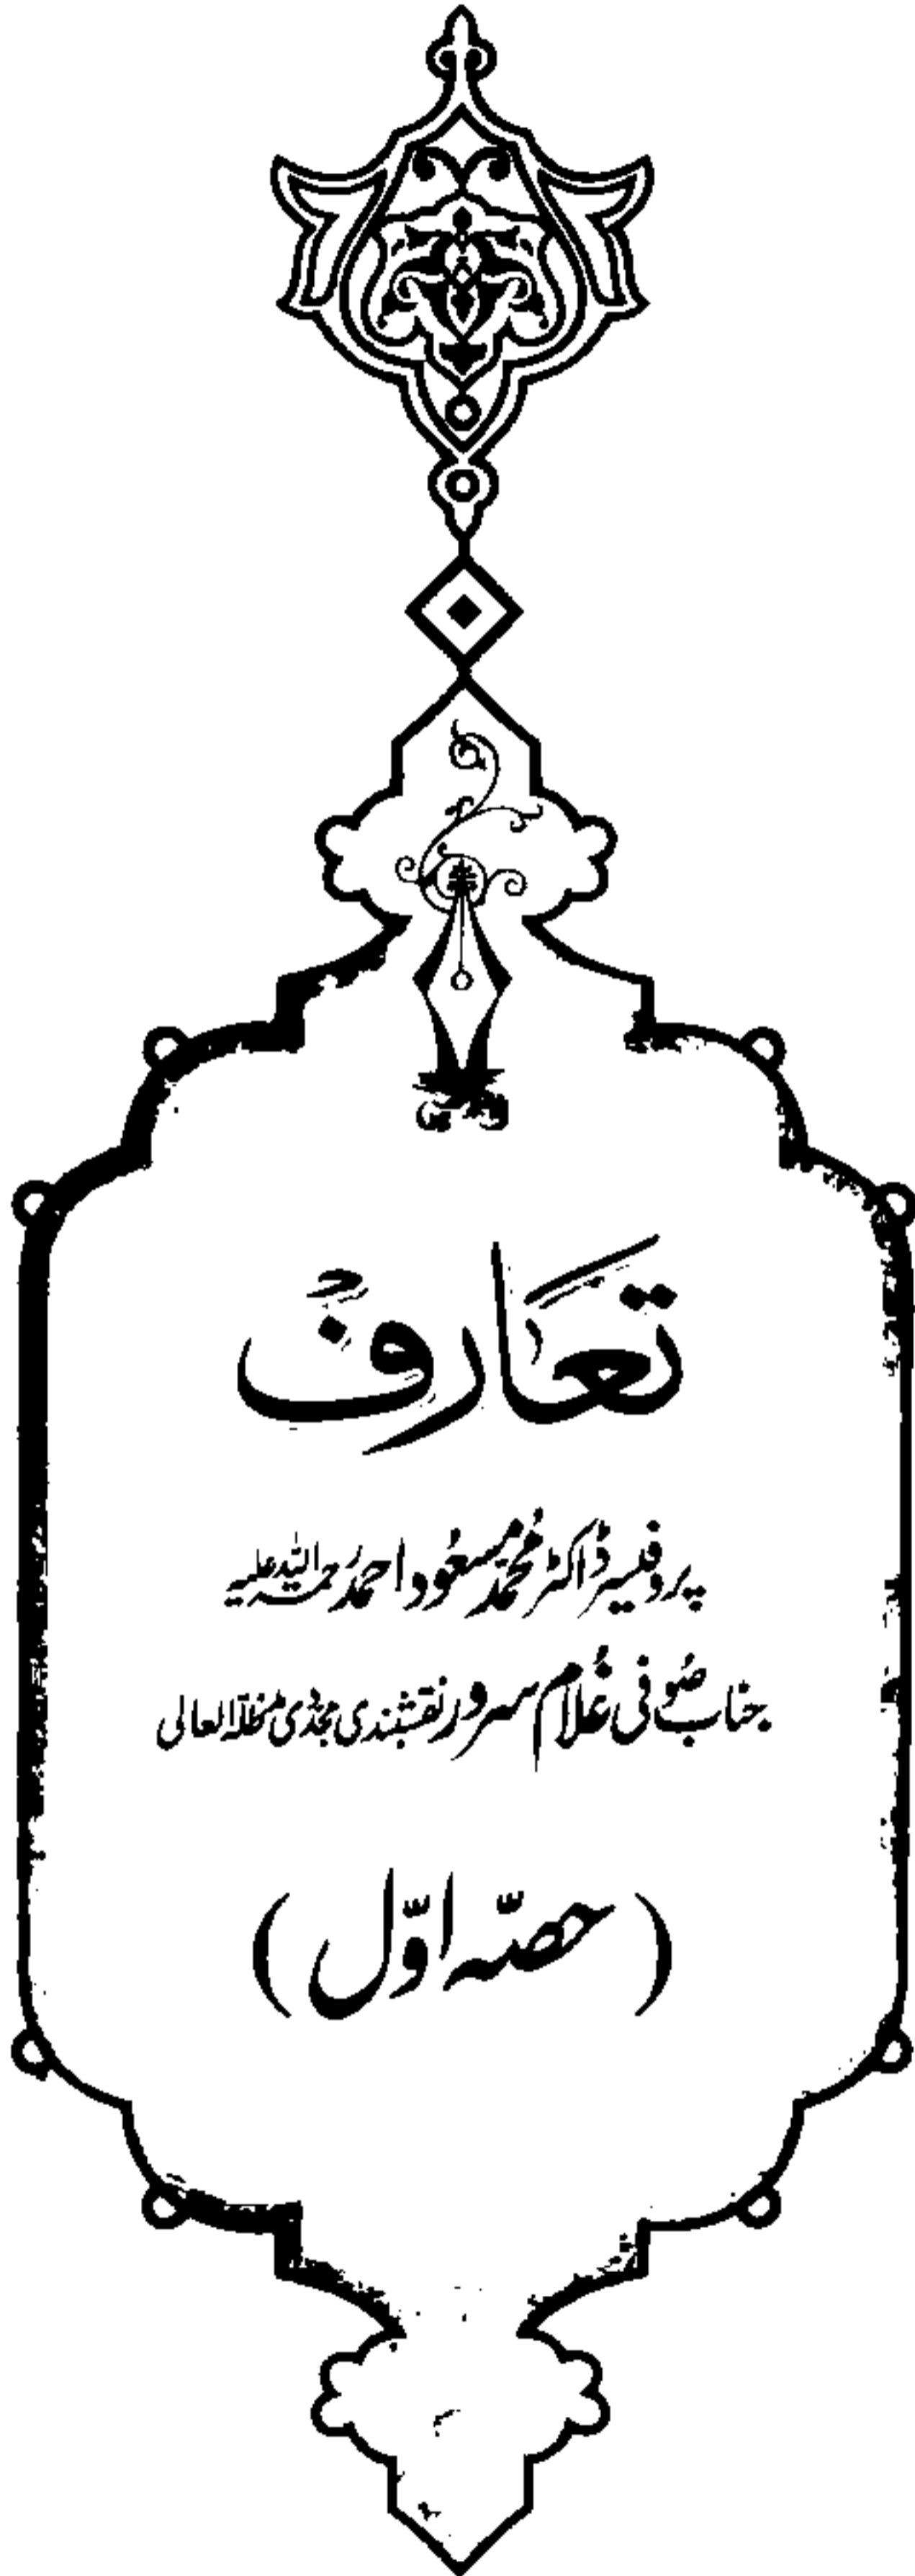 تعَارف
پروفیسر ڈاکٹر مُحمّد مسعُود احمدؒ رحمۃ اللہ علیہ
جناب صُوفی غُلام سرور نقشبندی مجدّدی مدّظلہ العالی
(حصّہ اوّل)